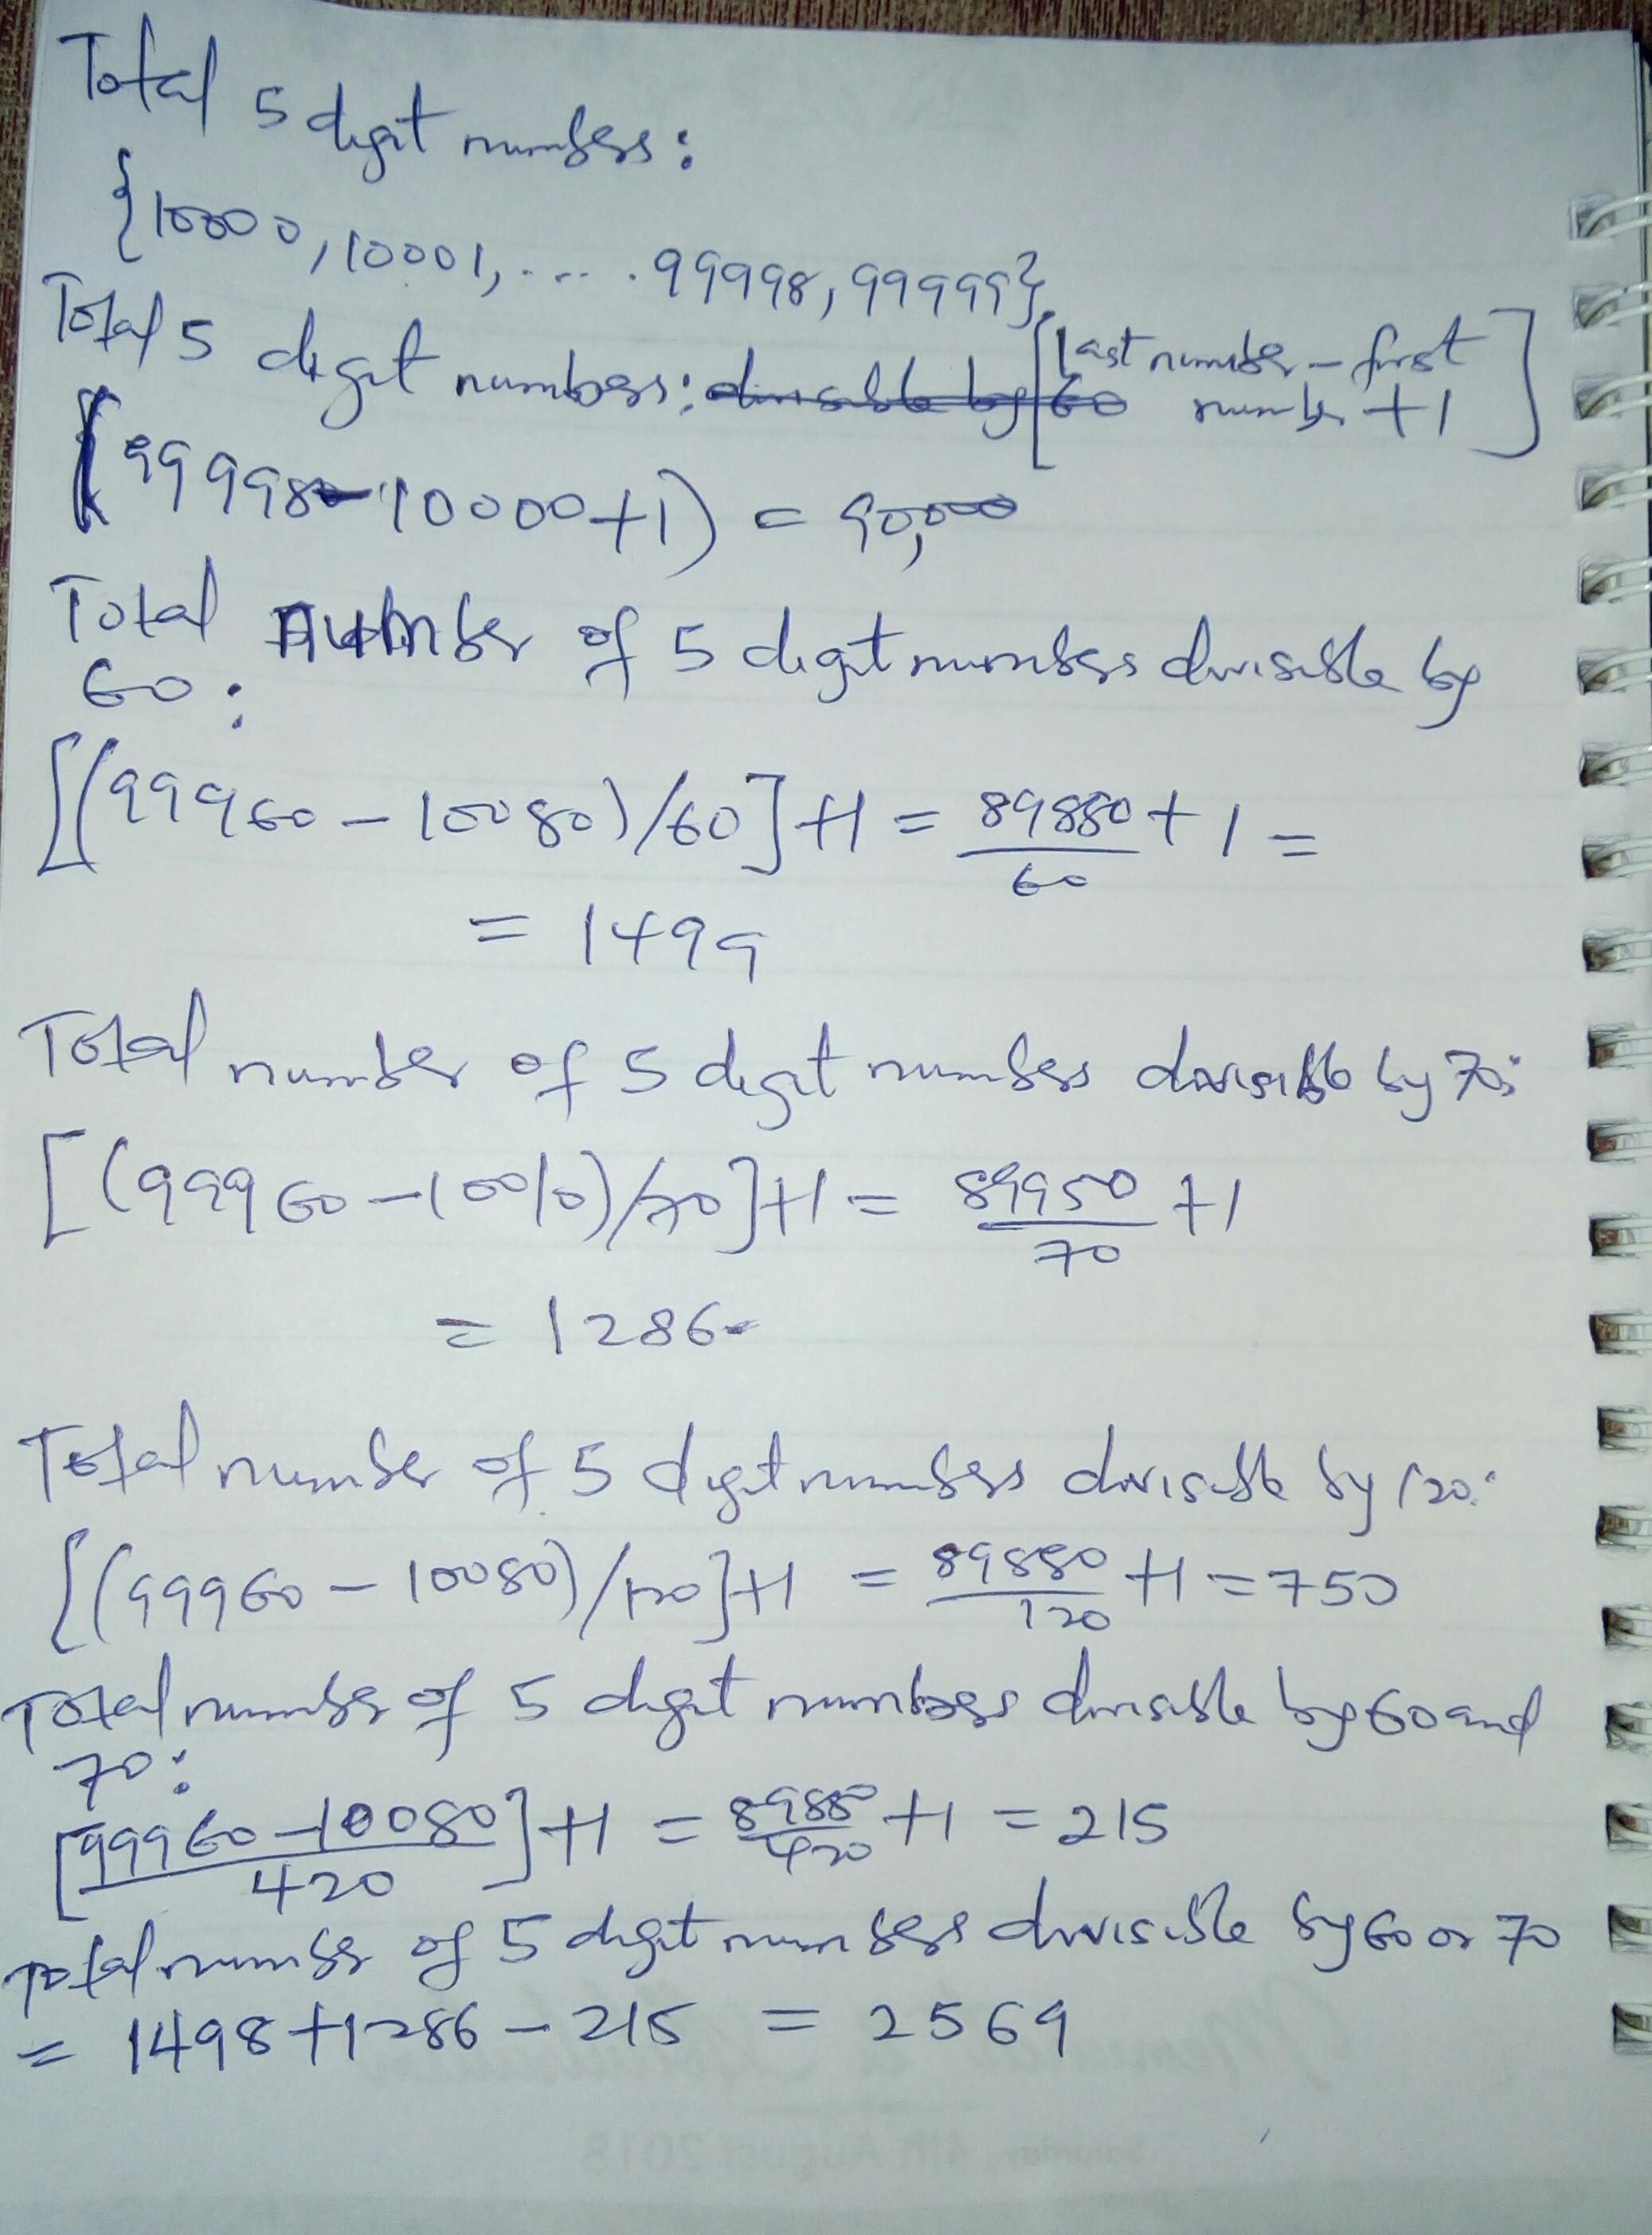 Total 5 digit numbers:
{10000, 10001, .... 99998, 99999}
Total 5 digit numbers: divisible by 60 [Last number - first number + 1]
(99998-10000+1) = 90,000
Total number of 5 digit numbers divisible by
60:
[(99960 - 10080)/60]+1 = 89880/60 + 1 =
= 1499
Total number of 5 digit numbers divisible by 70:
[(99960-10010)/70]+1 = 89950/70 +1
= 1286
Total number of 5 digit numbers divisible by 120:
[(99960 - 10080)/120]+1 = 89880/120 +1 = 750
Total number of 5 digit numbers divisible by 60 and
70:
[99960-10080/420]+1 = 89880/420 +1 = 215
Total number of 5 digit numbers divisible by 60 or 70
= 1498+1286-215 = 2569
Saturday, 4th August 2018